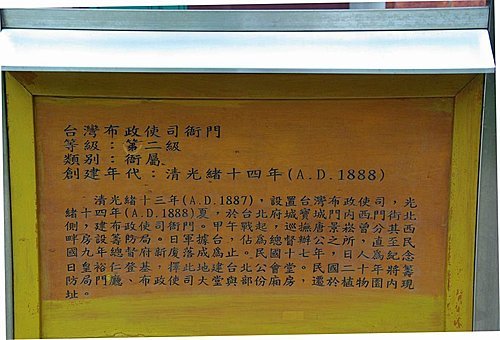 台灣布政使司衙門
等級：第二級
類别：衙屬
創建年代：清光緒十四年(A.D.1888)
清光緒十三年(A.D.1887)，設置台灣布政使司，光
緒十四年(A.D.1888)夏，於台北府城寶城門内西門街北
側，建布政使司衙門。甲午戰起，巡撫唐景崧曾分其西
畔房設籌防局。日軍據台，佔為總督辦公之所，直至民
國九年總督府新廈落成為止。民國十七年，日人為紀念
日皇裕仁登基，擇此地建台北公會堂。民國二十年將籌
防局門廳、布政使司大堂與部份廂房，遷於植物園内現
址。